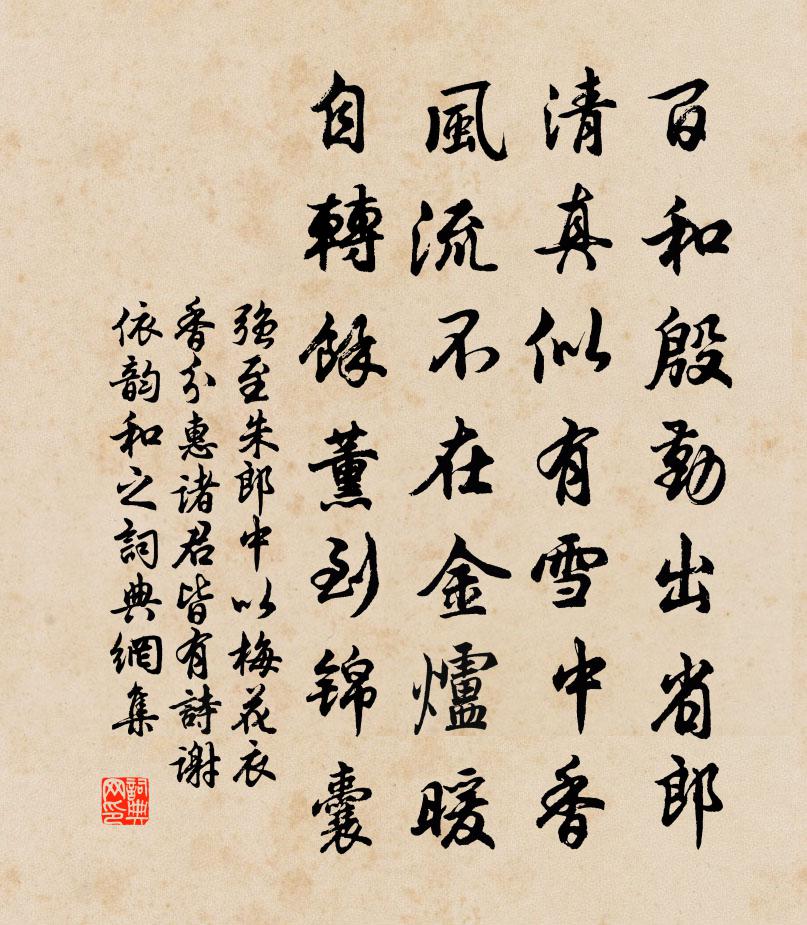 百和殷勤出省郎
清真似有雪中香
風流不在金爐暖
自轉餘薰到錦囊
強至朱郎中以梅花衣
香分惠諸君皆有詩謝
依韵和之詞典網集
詞典網印